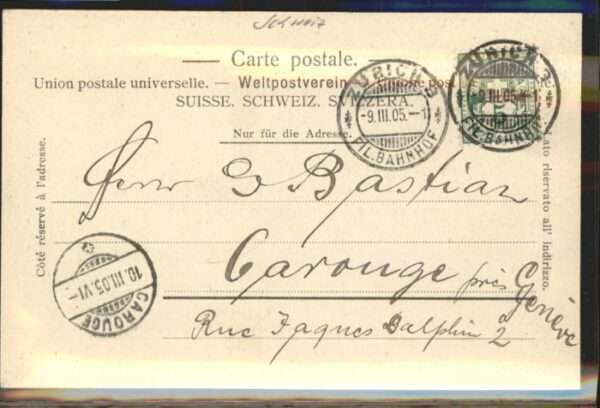 Schweiz
Carte postale.
Union postale universelle. — Weltpostverein — postale
SUISSE. SCHWEIZ. SVIZZERA.
Nur für die Adresse.
Côté réservé à l'adresse.
lato riservato all' indirizzo.
ZÜRICH 3
-9.III.05.-1
FIL.BAHNHOF
ZÜRICH 3
-9.III.05.-
FIL.BAHNHOF
Herrn G Bastian
Carouge près Genève
Rue Jaques Dalphin 2
10.III.05.VI-
CAROUGE